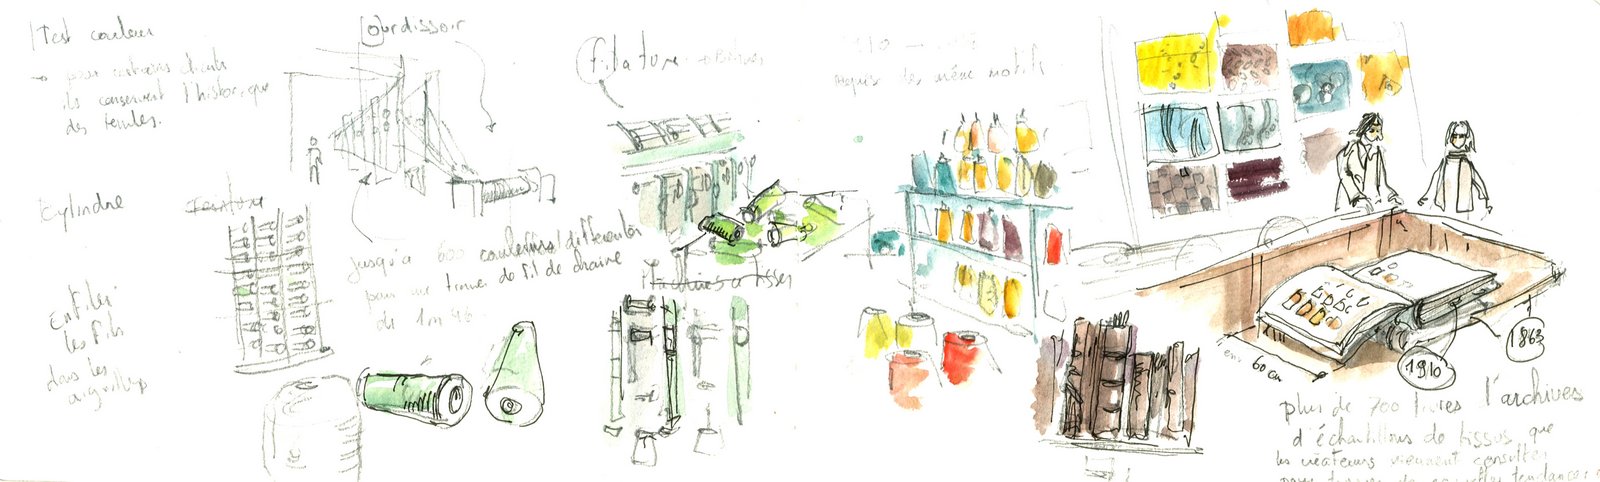 Test couleur
→ pour certains clients
ils conservent l'historique
des teintes.
Ourdissoir
filature →
1910
même motifs
Cylindre
jusqu'à 600 couleurs/différentes
pour une de fil de chaîne
de 1m
Machines à tisser
Enfiler
les fils
dans les
aiguilles
env 60 cm
1910
1863
plus de 700 livres d'archives
d'échantillons de tissus que
les créateurs viennent consulter
pour de nouvelles tendances